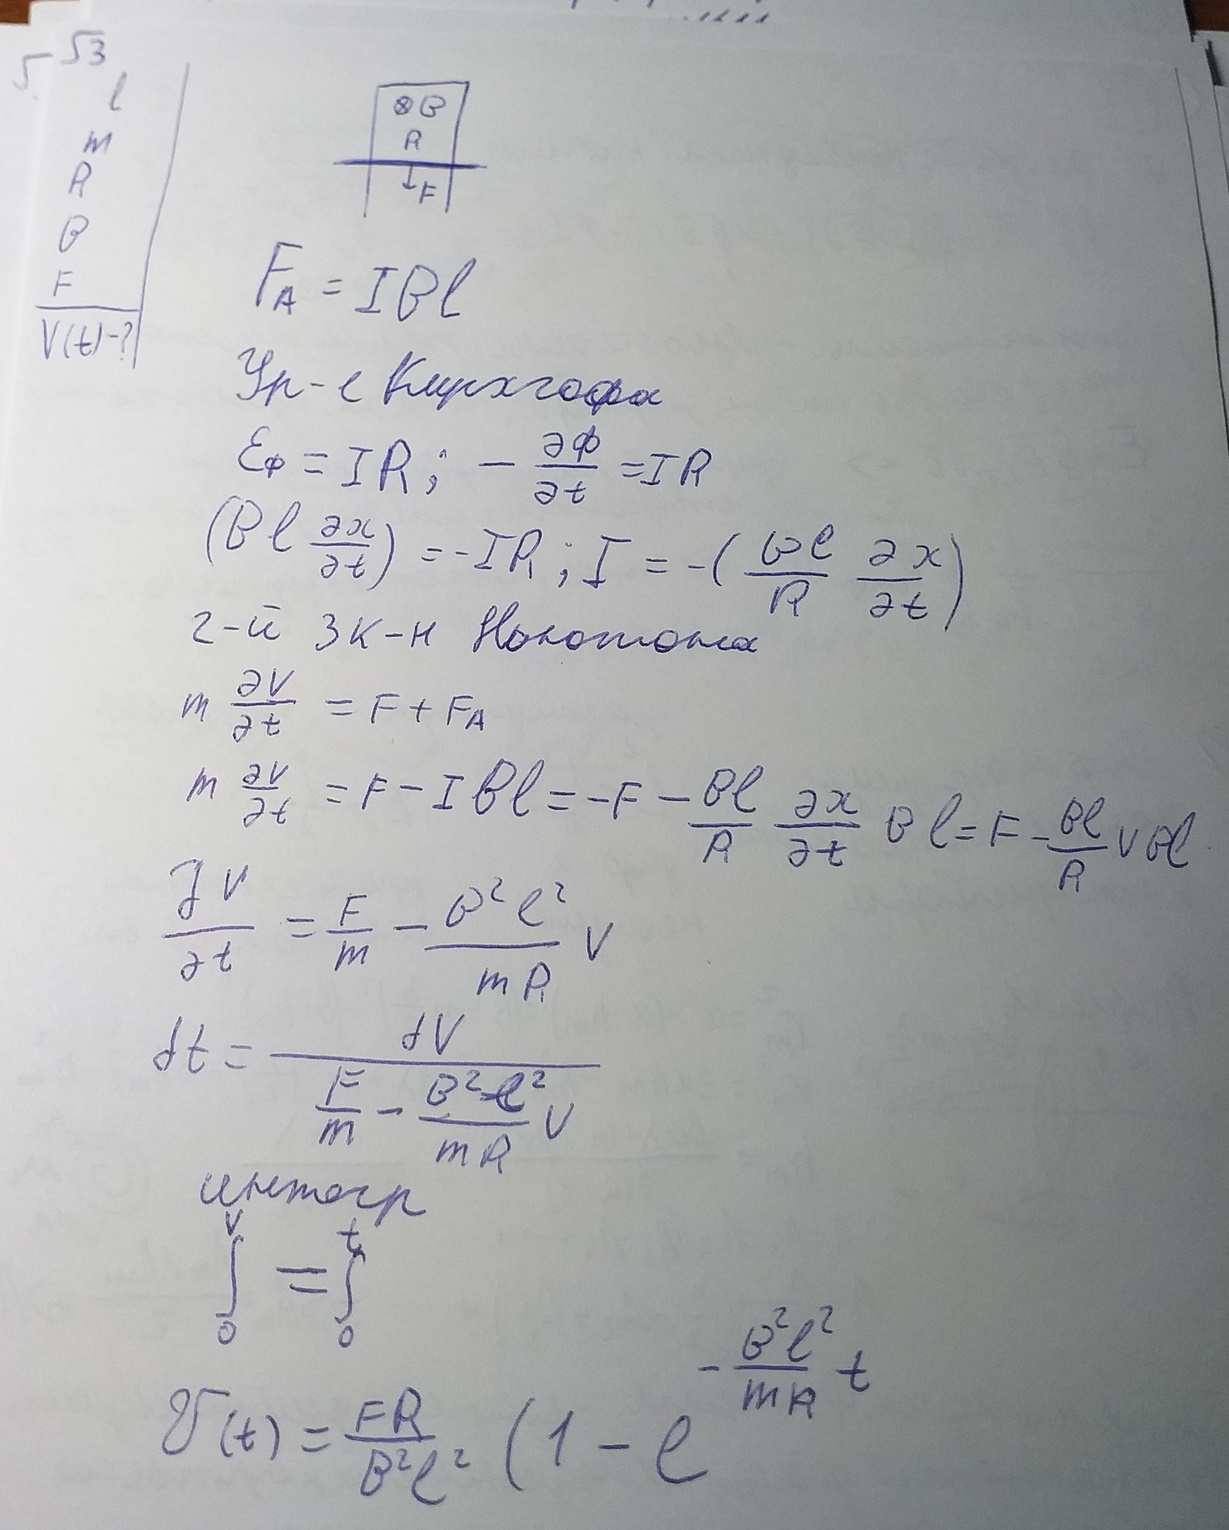 5 √3
l
m
R
B
F
V(t)-?
⊗B
R
F
F_A = IBl
Ур-е Кирхгофа
ε_Ф = IR; - ∂Ф/∂t = IR
(Bl ∂x/∂t) = -IR; I = -(Bl/R ∂x/∂t)
2-й Зк-н Ньютона
m ∂V/∂t = F + F_A
m ∂V/∂t = F - IBl = -F - Bl/R ∂x/∂t Bl = F - Bl/R V Bl
∂V/∂t = F/m - B²l²/mR V
dt = dV/(F/m - B²l²/mR V)
интегр
∫₀^V = ∫₀^t
V(t) = FR/B²l² (1 - e^(-B²l²/mR t)